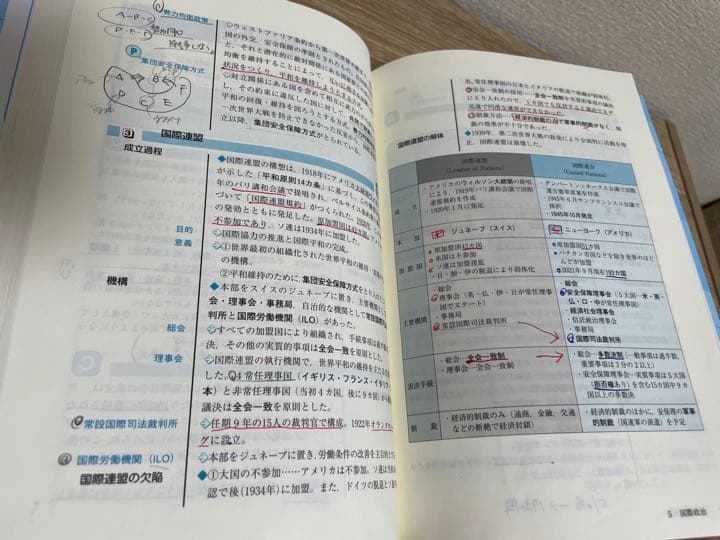 勢力均衡政策
A-B-C
D-E-F
P
集団安全保障方式
◇ウェストファリア条約から第一次世界
の国外交。安全保障の準則とされた
と、それと潜在的に敵対関係にある国
均衡を維持することによって、互いに
状況をつくり、平和を維持しようとする方式。
◇対立関係にある国を含めて相互に
し、その約束に違反した国に対して、
平和の回復・維持を図ろうとする方式。
一次世界大戦を防止できなかった反省から、
立以降、集団安全保障方式がとられている。
3 国際連盟
成立過程
◆国際連盟の構想は、1918年にアメリカ
が示した「平和原則14カ条」に基づく。
年のパリ講和会議で提唱され、ベルサイユ条約
づいて「国際連盟規約」がつくられた。
の発効とともに発足した。原加盟国は42か国
不参加であり、ソ連は1934年に加盟した。
目的
◇国際協力の推進と国際平和の完成。
意義
◇①世界最初の組織化された世界平和の維持
の機構。
②平和維持のために、集団安全保障方式をとり入れた
機構
◆本部をスイスのジュネーブに置き、主要機関
会・理事会・事務局、自治的な機関として常設国際
判所と国際労働機関（ILO）があった。
総会
◇すべての加盟国により組織され、手続事項は過半
決、その他の実質的事項は全会一致を原則とした。
理事会
◇国際連盟の執行機関で、世界平和の維持を主たる
した。4常任理事国（イギリス・フランス・イタリア
本）と非常任理事国（当初4カ国、後に9カ国）が
議決は全会一致を原則とした。
常設国際司法裁判所
◇任期9年の15人の裁判官で構成。1922年オランダ
グに設立。
国際労働機関（ILO）
◇本部をジュネーブに置き、労働条件の改善を主目的
国際連盟の欠陥
◆①大国の不参加……アメリカは不参加。ソ連は
認で後（1934年）に加盟。また、ドイツの脱退と
名。常任理事国の日本とイタリアの脱退で和戦が弱体化。
②全会一致制の採用……全会一致を実質的事項の議決
にとり入れたので、1カ国でも反対すると議決できず
迅速で円滑な運営ができなかった。
③制裁方法……経済的制裁のみで軍事的制裁がなく、制
裁の効果が不十分であった。
国際連盟の解体
◆1939年、第二次世界大戦の勃発により全面的に活動を停
止。国際連盟は崩壊した。
国際連盟
(League of Nations)
国際連合
(United Nations)
成立
・アメリカのウィルソン大統領の提唱
により、1919年パリ講和会議で国際
連盟規約を作成
・1920年1月に発足
・ダンバートン・オークス会議で国際
連合憲章原案を作成
・1945年6月サンフランシスコ会議で
採択
・1945年10月発足
本部
ジュネーブ（スイス）
ニューヨーク（アメリカ）
加盟国
・原加盟国42カ国
・米国は不参加
・ソ連は加盟遅延
・日・独・伊の脱退により弱体化
・原加盟国51カ国
・バチカン市国などを除き世界のほ
とんどが加盟
・2021年9月現在193カ国
主要機関
・総会
・理事会（英・仏・伊・日が常任理事
国でスタート）
・事務局
・常設国際司法裁判所
・総会
・安全保障理事会（5大国―米・英・
仏・ロ・中が常任理事国）
・経済社会理事会
・信託統治理事会
・事務局
・国際司法裁判所
表決手続
・総会…全会一致制
・理事会…全会一致制
・総会…多数決制（一般事項は過半数、
重要事項は3分の2以上）
・安全保障理事会…実質事項は5大国
（拒否権あり）を含む15カ国中9カ
国以上の多数決
制裁
・経済的制裁のみ（通商、金融、交通
などの断絶で経済封鎖）
・経済的制裁のほかに、安保理の軍事
的制裁（国連軍の派遣）を予定
5 国際政治